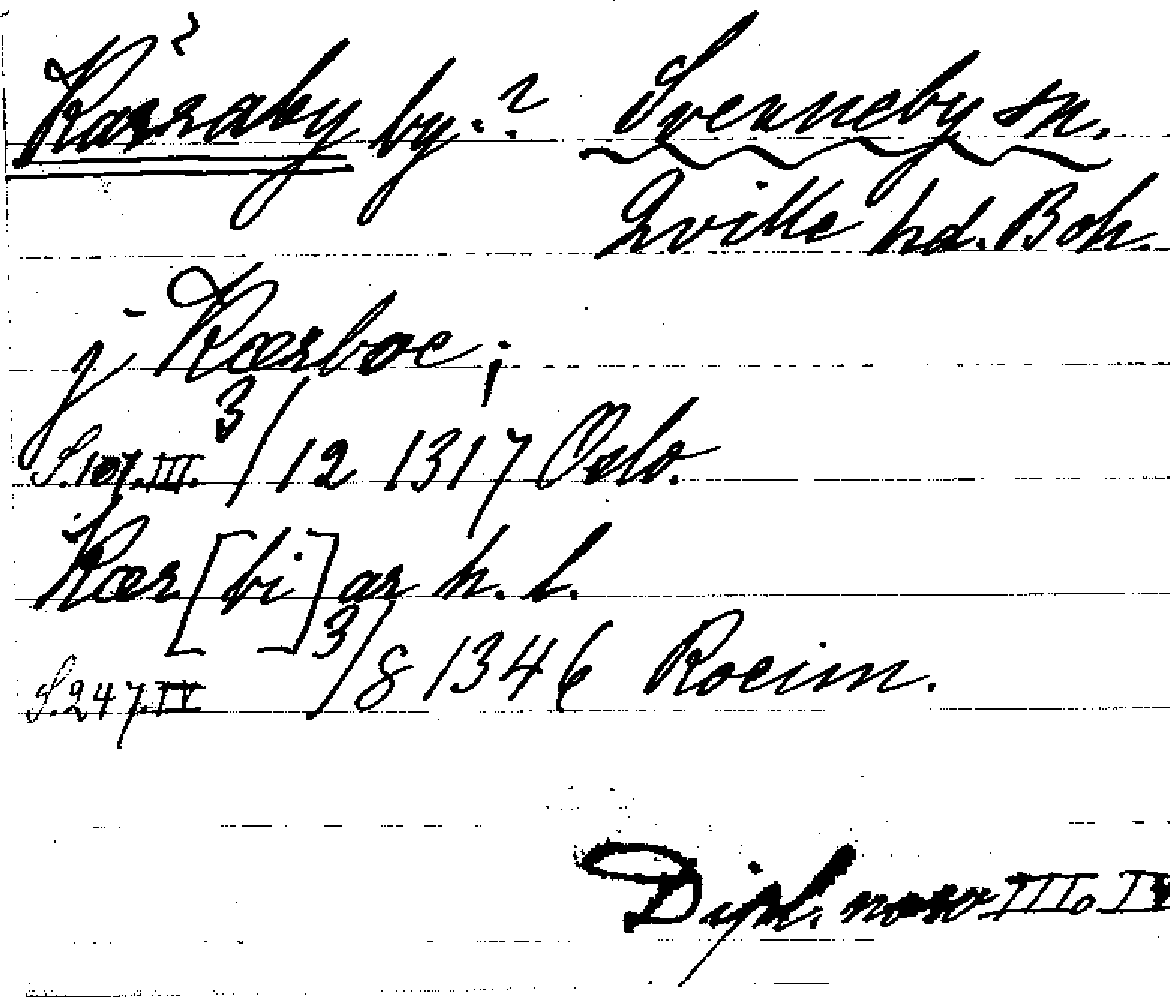 Kærraby by.? Svenneby sn.
Qville hd. Boh.
j Kærboe;
S. 107. III. 3/12 1317 Oslo.
Kær[bi]ar h. l.
S. 247. IV 3/8 1346 Roeim.
Dipl. norv III o IV